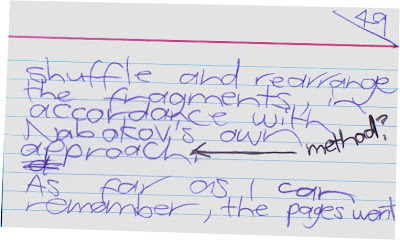 49
shuffle and rearrange
the fragments in
accordance with
Nabokov's own
approach. method?
As far as I can
remember, the pages went